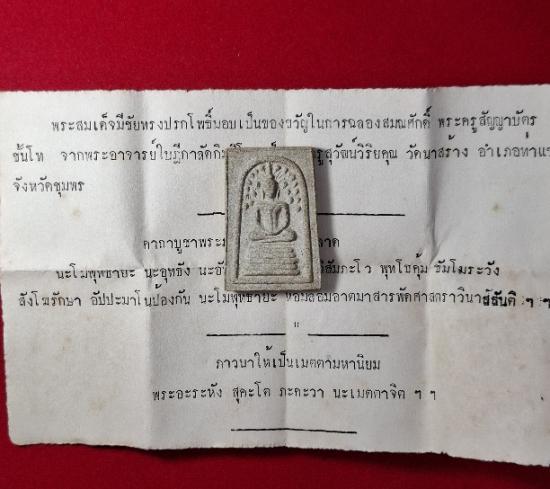 พระสมเด็จมีชัยทรงปรกโพธิ์มอบเป็นของขวัญในการฉลองสมณศักดิ์ พระครูสัญญาบัตร
ชั้นโท จากพระอาจารย์ใบฎีกา สุวัฒน์วิริยคุณ วัดนาสร้าง อำเภอท่าแซ
จังหวัดชุมพร
คาถาบูชาพระ
นะโมพุทธายะ นะอุทธัง พุทโธคุ้ม ธัมโมระวัง
สังโฆรักษา อัปปะมาโนป้องกัน นะโมพุทธายะ ห้อมล้อมอาตมาสารพัดศาสตราวินาสสันติ ๆ ๆ
"
ภาวนาให้เป็นเมตตามหานิยม
พระอะระหัง สุคะโต ภะคะวา นะเมตตาจิต ๆ ๆ